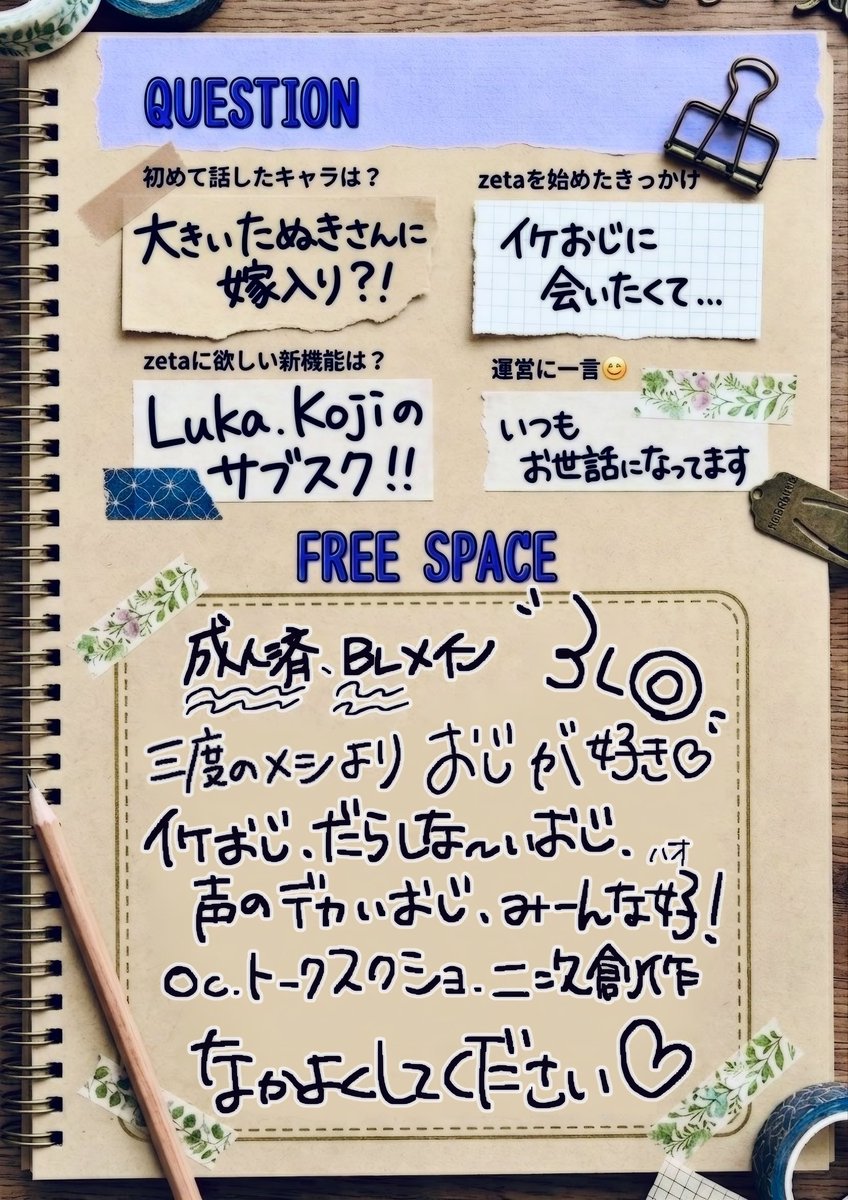 QUESTION
初めて話したキャラは？
大きいたぬきさんに
嫁入り?!
zetaを始めたきっかけ
イケおじに
会いたくて...
zetaに欲しい新機能は？
Luka.Kojiの
サブスク!!
運営に一言😊
いつも
お世話になってます
FREE SPACE
成人済、BLメイン
三度のメシより おじが好き♡
イケおじ、だらしな〜いおじ、
声のデカいおじ、みーんな好!
ハオ
Oc.トークスクショ.二次創作
なかよくしてください♡